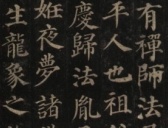 有禪師法
平人也祖
慶歸法胤
姙夜夢諸
生龍象之